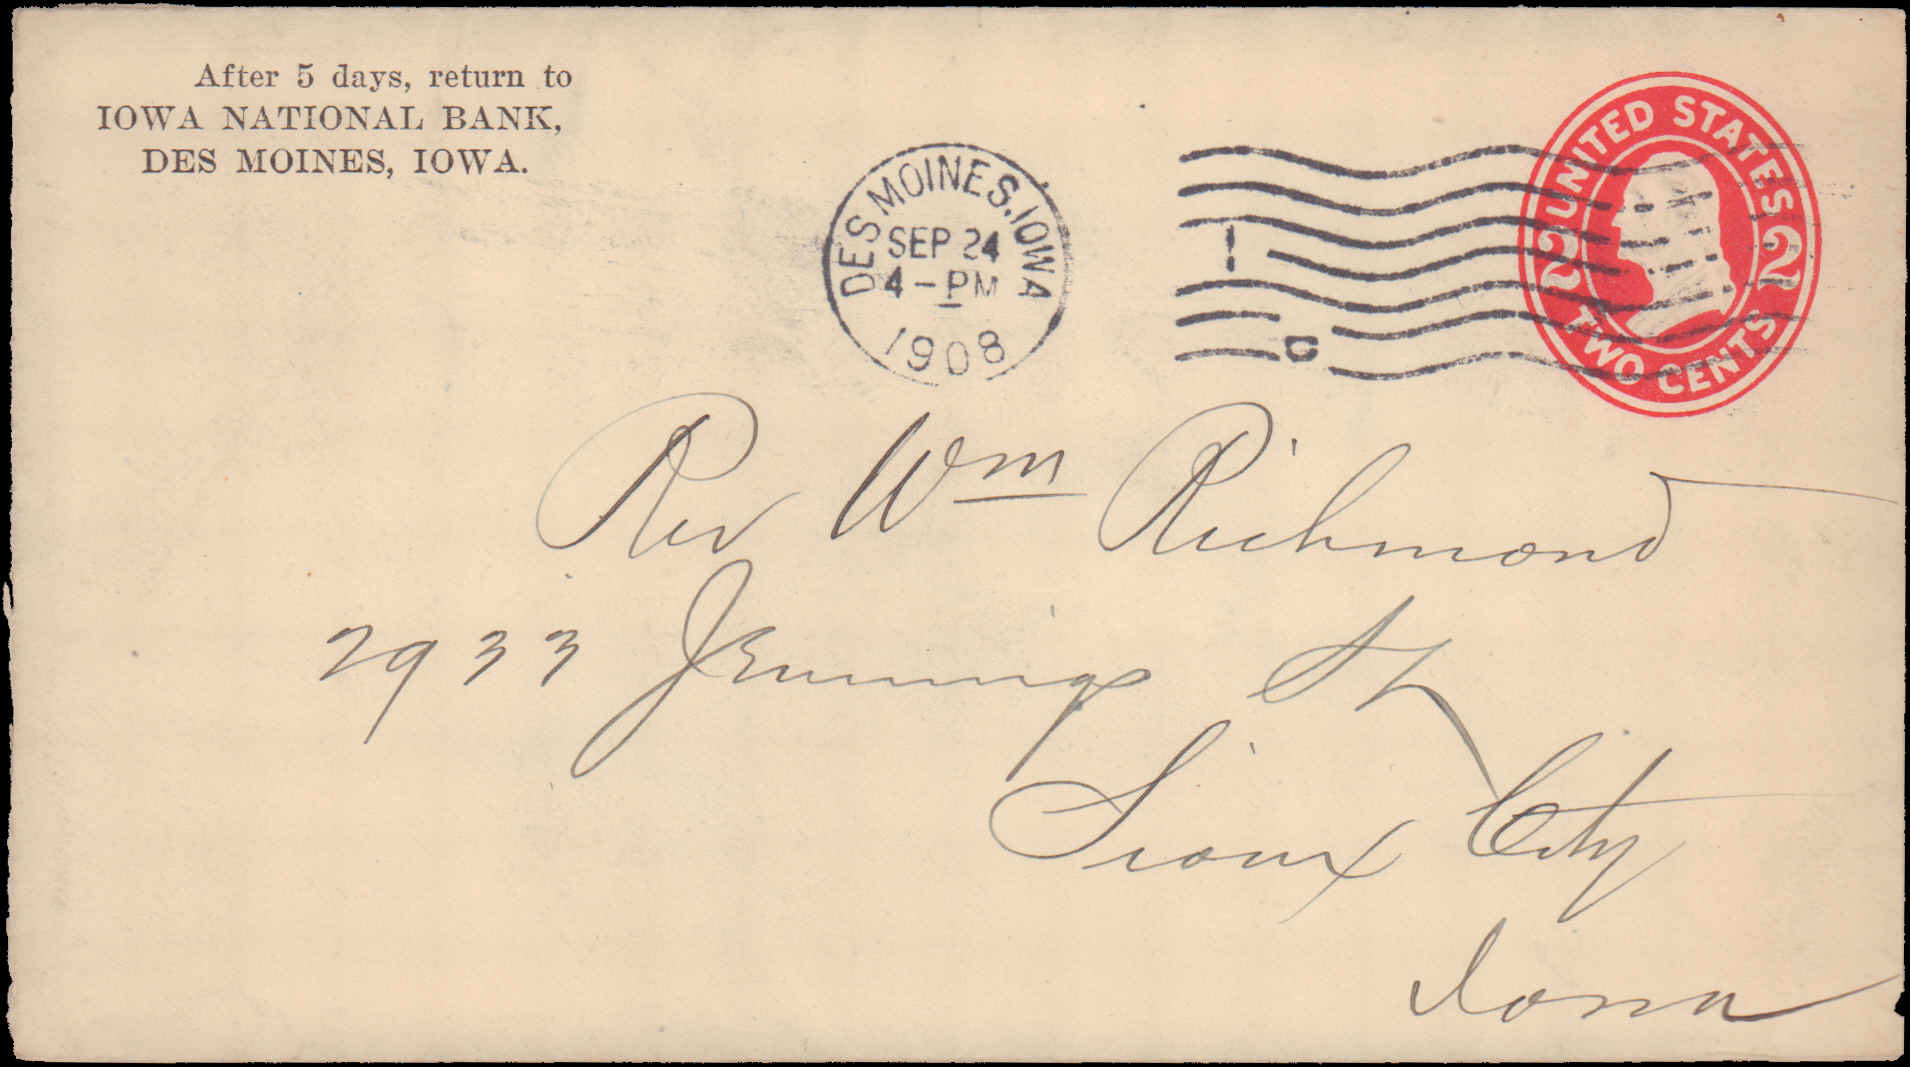 After 5 days, return to
IOWA NATIONAL BANK,
DES MOINES, IOWA.
DES MOINES, IOWA
SEP 24
4-PM
1908
1
D
UNITED STATES
2 2
TWO CENTS
Rev Wm Richmond
2933 Jennings St
Sioux City
Iowa